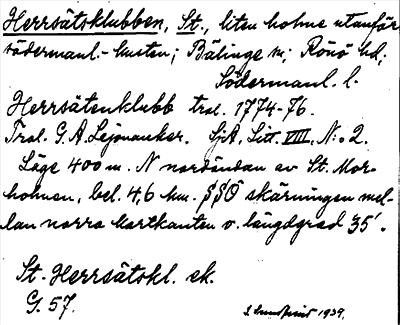 Herrsätsklubben, St., liten holme utanför
södermanl.-kusten; Bälinge sn; Rönö hd;
Södermanl. l.
Herrsätenklubb trol. 1774-76.
Trol. G. A. Lejonanker. SjA, Litt. VIII, N:o 2.
Läge 400 m. N nordändan av St. Mor-
holmen, bel. 4,6 km. SSO skärningen mel-
lan norra kartkanten o. längdgrad 35'.
St. Herrsätskl. ek.
G. 57.
1939.